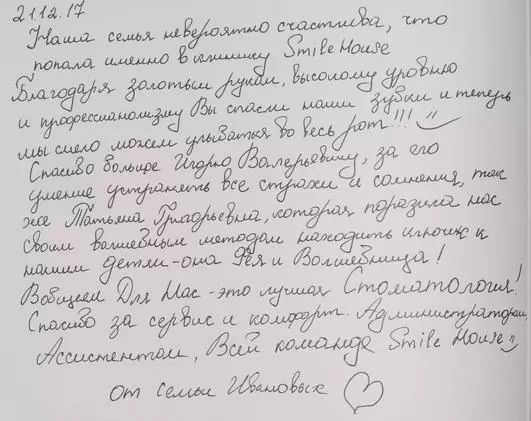 21.12.17
Наша семья невероятно счастлива, что
попала именно в клинику Smile House
Благодаря золотым рукам, высокому уровню
и профессионализму Вы спасли наши зубки и теперь
мы смело можем улыбаться во весь рот!!!
Спасибо больше Игорю Валерьевичу, за его
умение устранять все страхи и сомнения, так
же Татьяна Григорьевна, которая поразила нас
своим волшебным методом находить ключик к
нашим детям - она Фея и Волшебница!
Вобщем Для Нас - это лучшая Стоматология!
Спасибо за сервис и комфорт. Администраторам,
Ассистентам, Всей команде Smile House
от семьи Ивановых